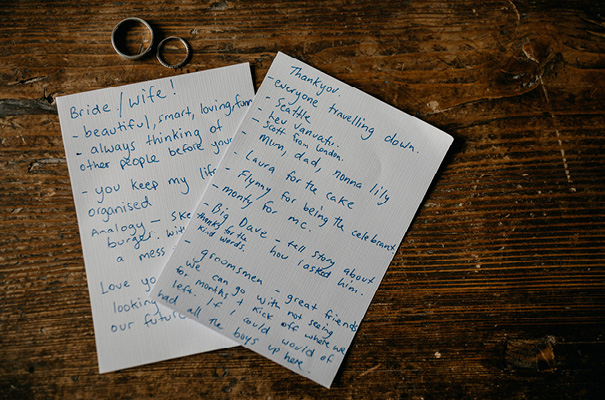 Bride / Wife!
- beautiful, smart, loving, fun
- always thinking of
other people before your
- you keep my life
organised
Analogy - 
burger. with
a mess
Love you
looking
our future
Thankyou.
- everyone travelling down.
- Seattle
- Lev Vanuatu.
- Scott from London.
- Mum, dad, nonna lily
- Laura for the cake
- Flynny for being the celebrant
- monty for mc.
- Big Dave - tell story about
thanks for the how I asked him..
kind words.
- groomsmen - great friends
we can go with not seeing
for months & kick off where we
left. If I could would of
had all the boys up here.